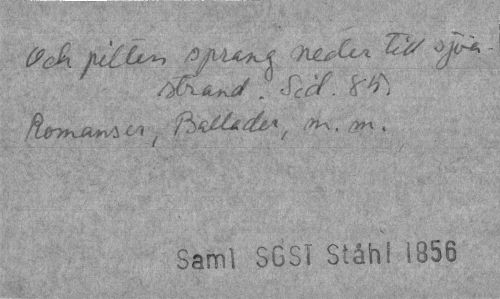 Och pilten sprang neder till sjöa-
strand. Sid. 85.
Romanser, Ballader, m. m.
Saml SGST Ståhl 1856